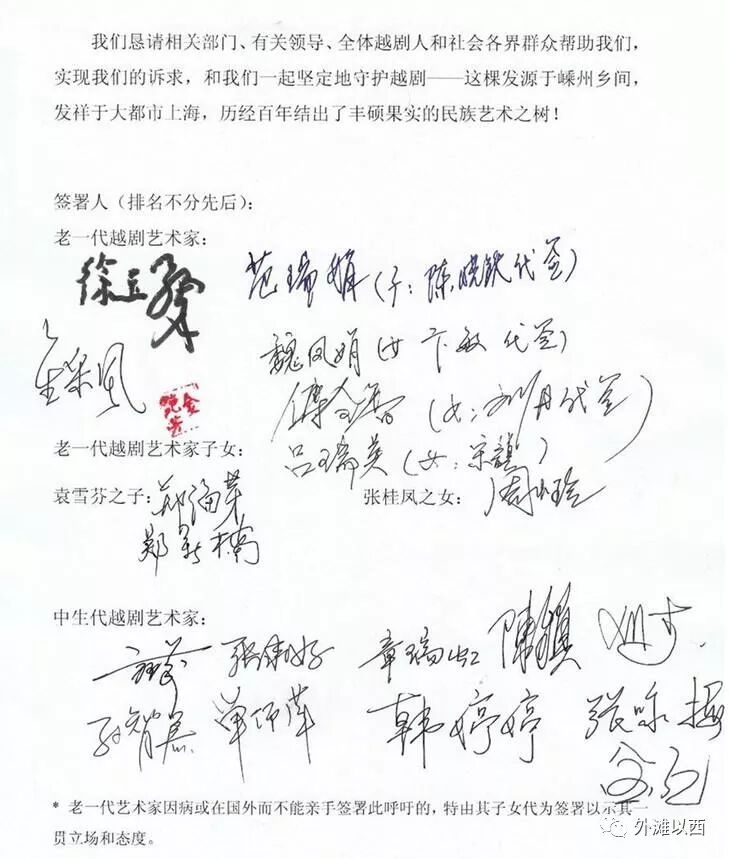 我们恳请相关部门、有关领导、全体越剧人和社会各界群众帮助我们，
实现我们的诉求，和我们一起坚定地守护越剧——这棵发源于嵊州乡间，
发祥于大都市上海，历经百年结出了丰硕果实的民族艺术之树！
签署人（排名不分先后）：
老一代越剧艺术家：
徐玉兰 范瑞娟（子：陈晓铁代签）
金采风 魏凤娟（女 卞敏 代签）
傅全香（女：刘丹代签）
老一代越剧艺术家子女： 吕瑞英（女：宋馥）
袁雪芬之子：郑福芽 张桂凤之女：周小玲
郑新楠
中生代越剧艺术家：
章瑞虹 陈颖
孙智君 单仰萍 韩婷婷 张咏梅
* 老一代艺术家因病或在国外而不能亲手签署此呼吁的，特由其子女代为签署以示其一
贯立场和态度。
外滩以西